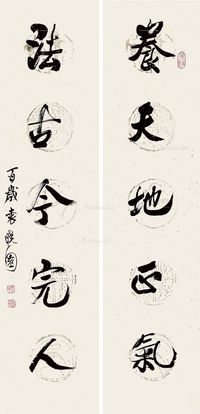 養天地正氣
法古今完人
百歲袁曉園